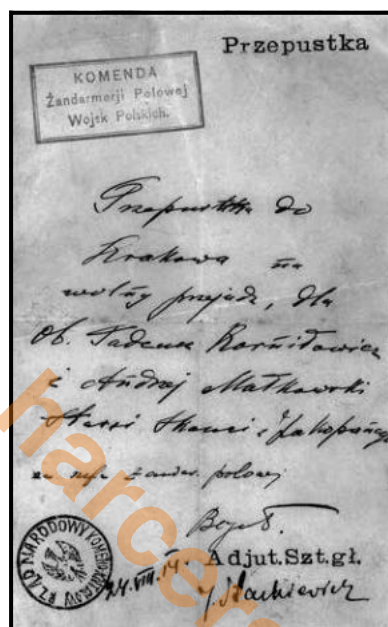 Przepustka
KOMENDA
Żandarmerji Polowej
Wojsk Polskich.
Przepustka do
Krakowa na
wolny przejazd, dla
Ob. Tadeusz Korniłowicz
i Andrzej Małkowski
Starsi Skauci z Zakopanego
za szefa żandar. polowej
RZĄD NARODOWY
24.VIII.14.
Adjut.Szt.gł.
harcer